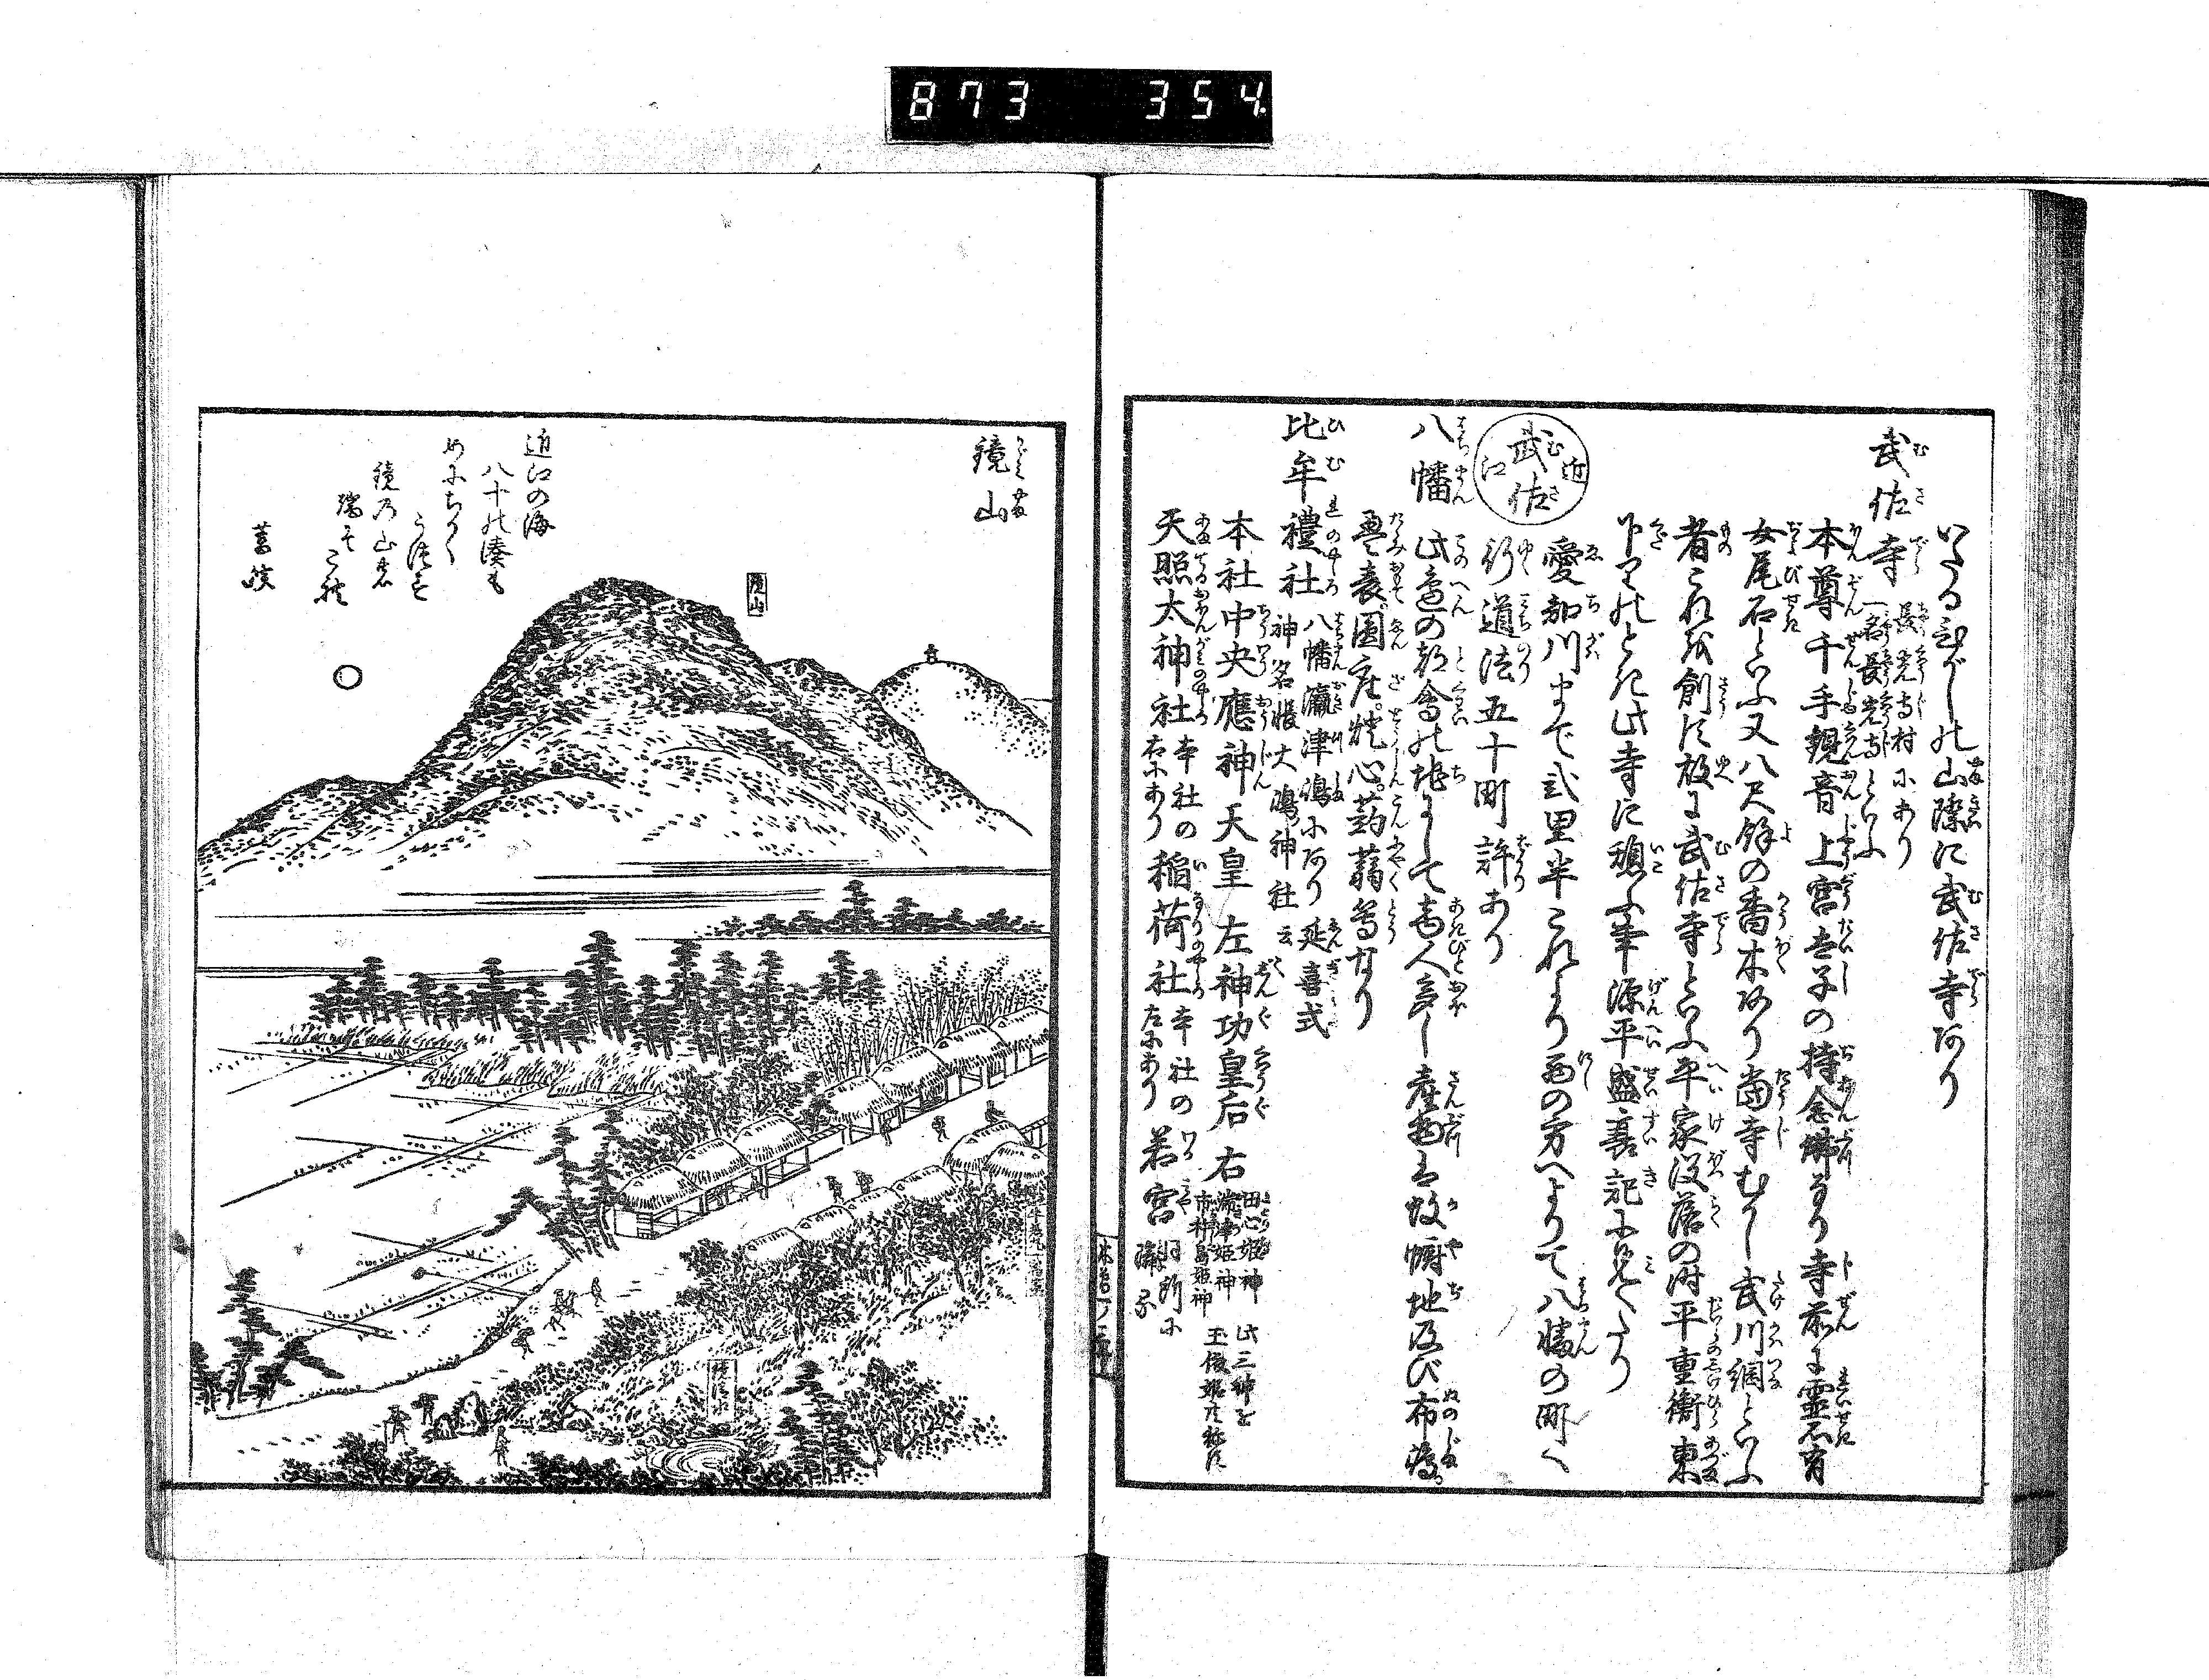 873 354
いたるひがしの山際に武佐寺あり
武佐寺 長光寺村にあり
一名長光寺といふ
本尊千手観音上宮太子の持念佛なり寺前に霊石有
女尾石といふ又八尺餘の香木あり當寺むかし武川綱といふ
者これを創す故に武佐寺といふ平家没落の時平重衡東
下りのとき此寺に憩ふ事源平盛衰記に見えたり
近江 武佐
愛知川まで弐里半これより西の方へよりて八幡の町へ
行道法五十町許あり
八幡 此邉の都會の地にして商人多し産物は蚊幮地及び布嶋
畳表圓座燈心蒟蒻等なり
比牟禮社 八幡瀛津嶋にあり延喜式
神名帳大嶋神社云云
本社中央應神天皇 左神功皇后 右
田心姫神
湍津姫神
市杵島姫神
此三神を
玉依姫と称す
天照太神社 本社の
右にあり
稲荷社 本社の
左にあり
若宮 同所に
隣る
鏡山
近江の海
八十の湊も
めにちかく
うつす
鏡の山の
端そこれ
鏡山